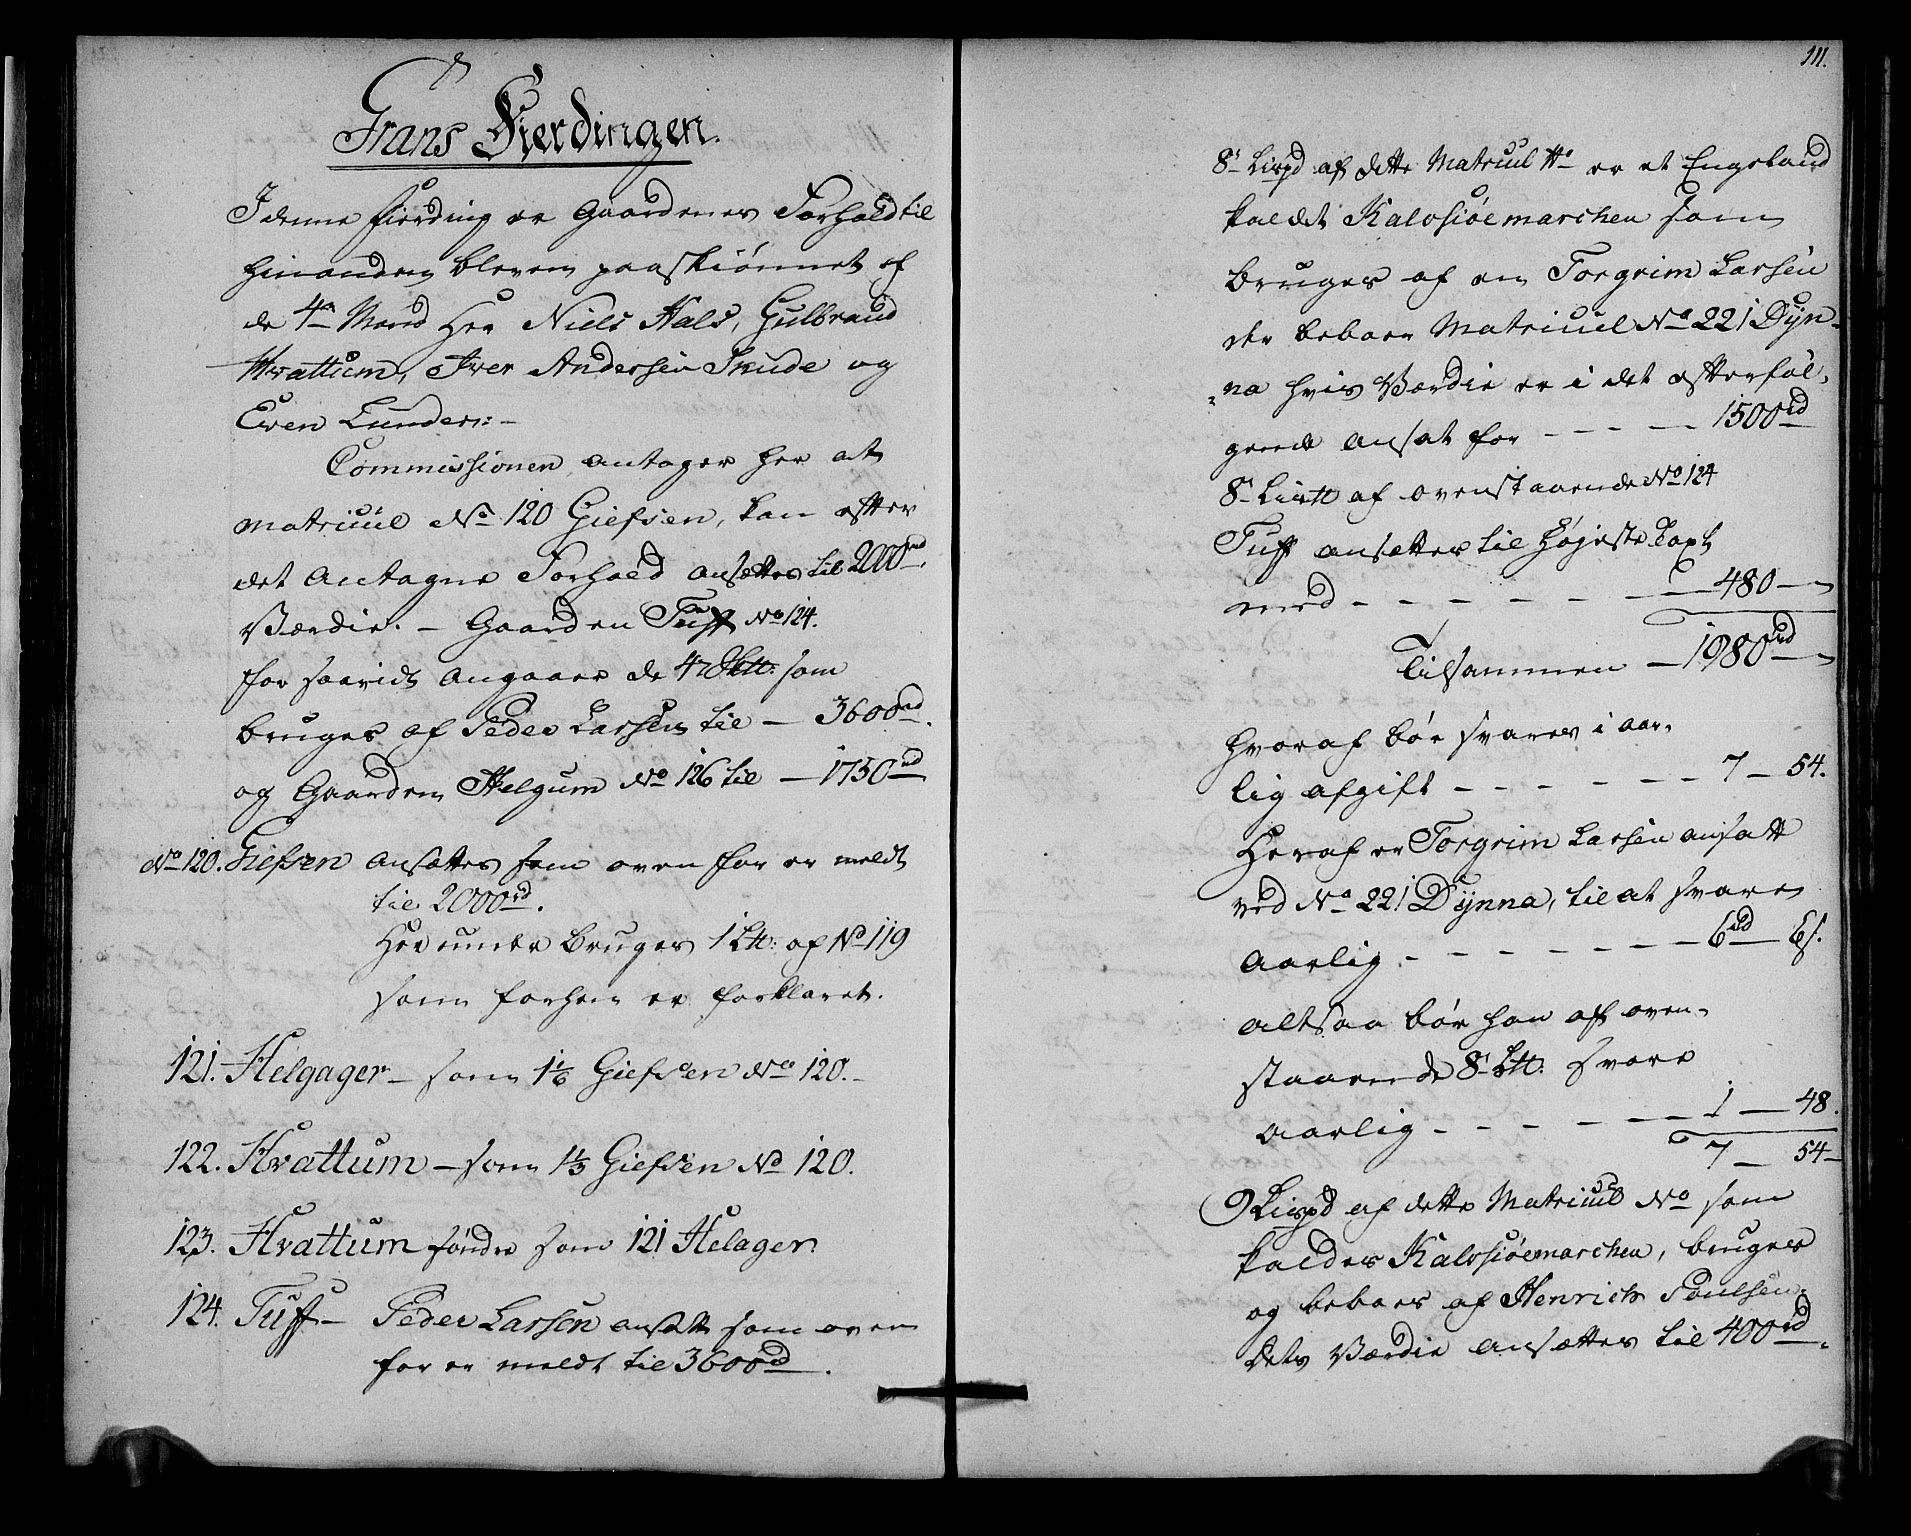 Grans Fierdingen.
I denne fierding er Gaardenes Forhold til
hinanden bleven paaskiønnet af
de 4re Mænd Her Niels Hals, Gulbrand
Hvattum, Iver Andersen Skude og
Even Lunder: -
Commissionen antager her at
matricul No 120 Giefsen, kan efter
det Antagne Forhold ansættes til 2000rd.
Værdie. - Gaarden Tuff No 124.
for saavidt Angaaer de 4 som
bruges af Peder Larsen til — 3600rd.
og Gaarden Helgum No 126 til — 1750rd
No 120. Giefsen ansættes som oven for er meldt
til 2000rd.
Her under bruges 1 L℔: af No 119
som forhen er forklaret.
121. Helgager - som 1 1/6 Giefsen No 120. -
122. Hvattum - som 1 1/3 Giefsen No 120.
123. Hvattum søndre som 121 Helager.
124. Tuff - Peder Larsen ansatt som oven
for er meldt til 3600rd.
111.
8 Lispd af dette Matricul No er et Engeland
kaldet Kalvsiøemarchen som
bruges af en Torgrim Larsen
der beboer Matricul No 221 Dyn-
na hvis Værdie er i det efterføl-
gende ansat for - - - 1500rd
8 Lis℔ af ovenstaaende No 124
Tuff ansættes til høieste Taxt
med - - - - - - 480 —
Tilsammen — 1980rd —
hvoraf bør svares i aar-
lig afgift - - - - - 7 — 54.
Heraf er Torgrim Larsen ansatt
ved No 221 Dynna, til at svare
aarlig - - - - - - 6rd — 6s.
altsaa bør han af oven-
staaende 8 L℔. svare
aarlig - - - - - 1 — 48.
7 — 54 —
9 Lispd af dette Matricul No som
kaldes Kalvsiøemarchen, bruges
og beboes af Henrich Poulsen.
dets Værdie ansættes til 400rd —.